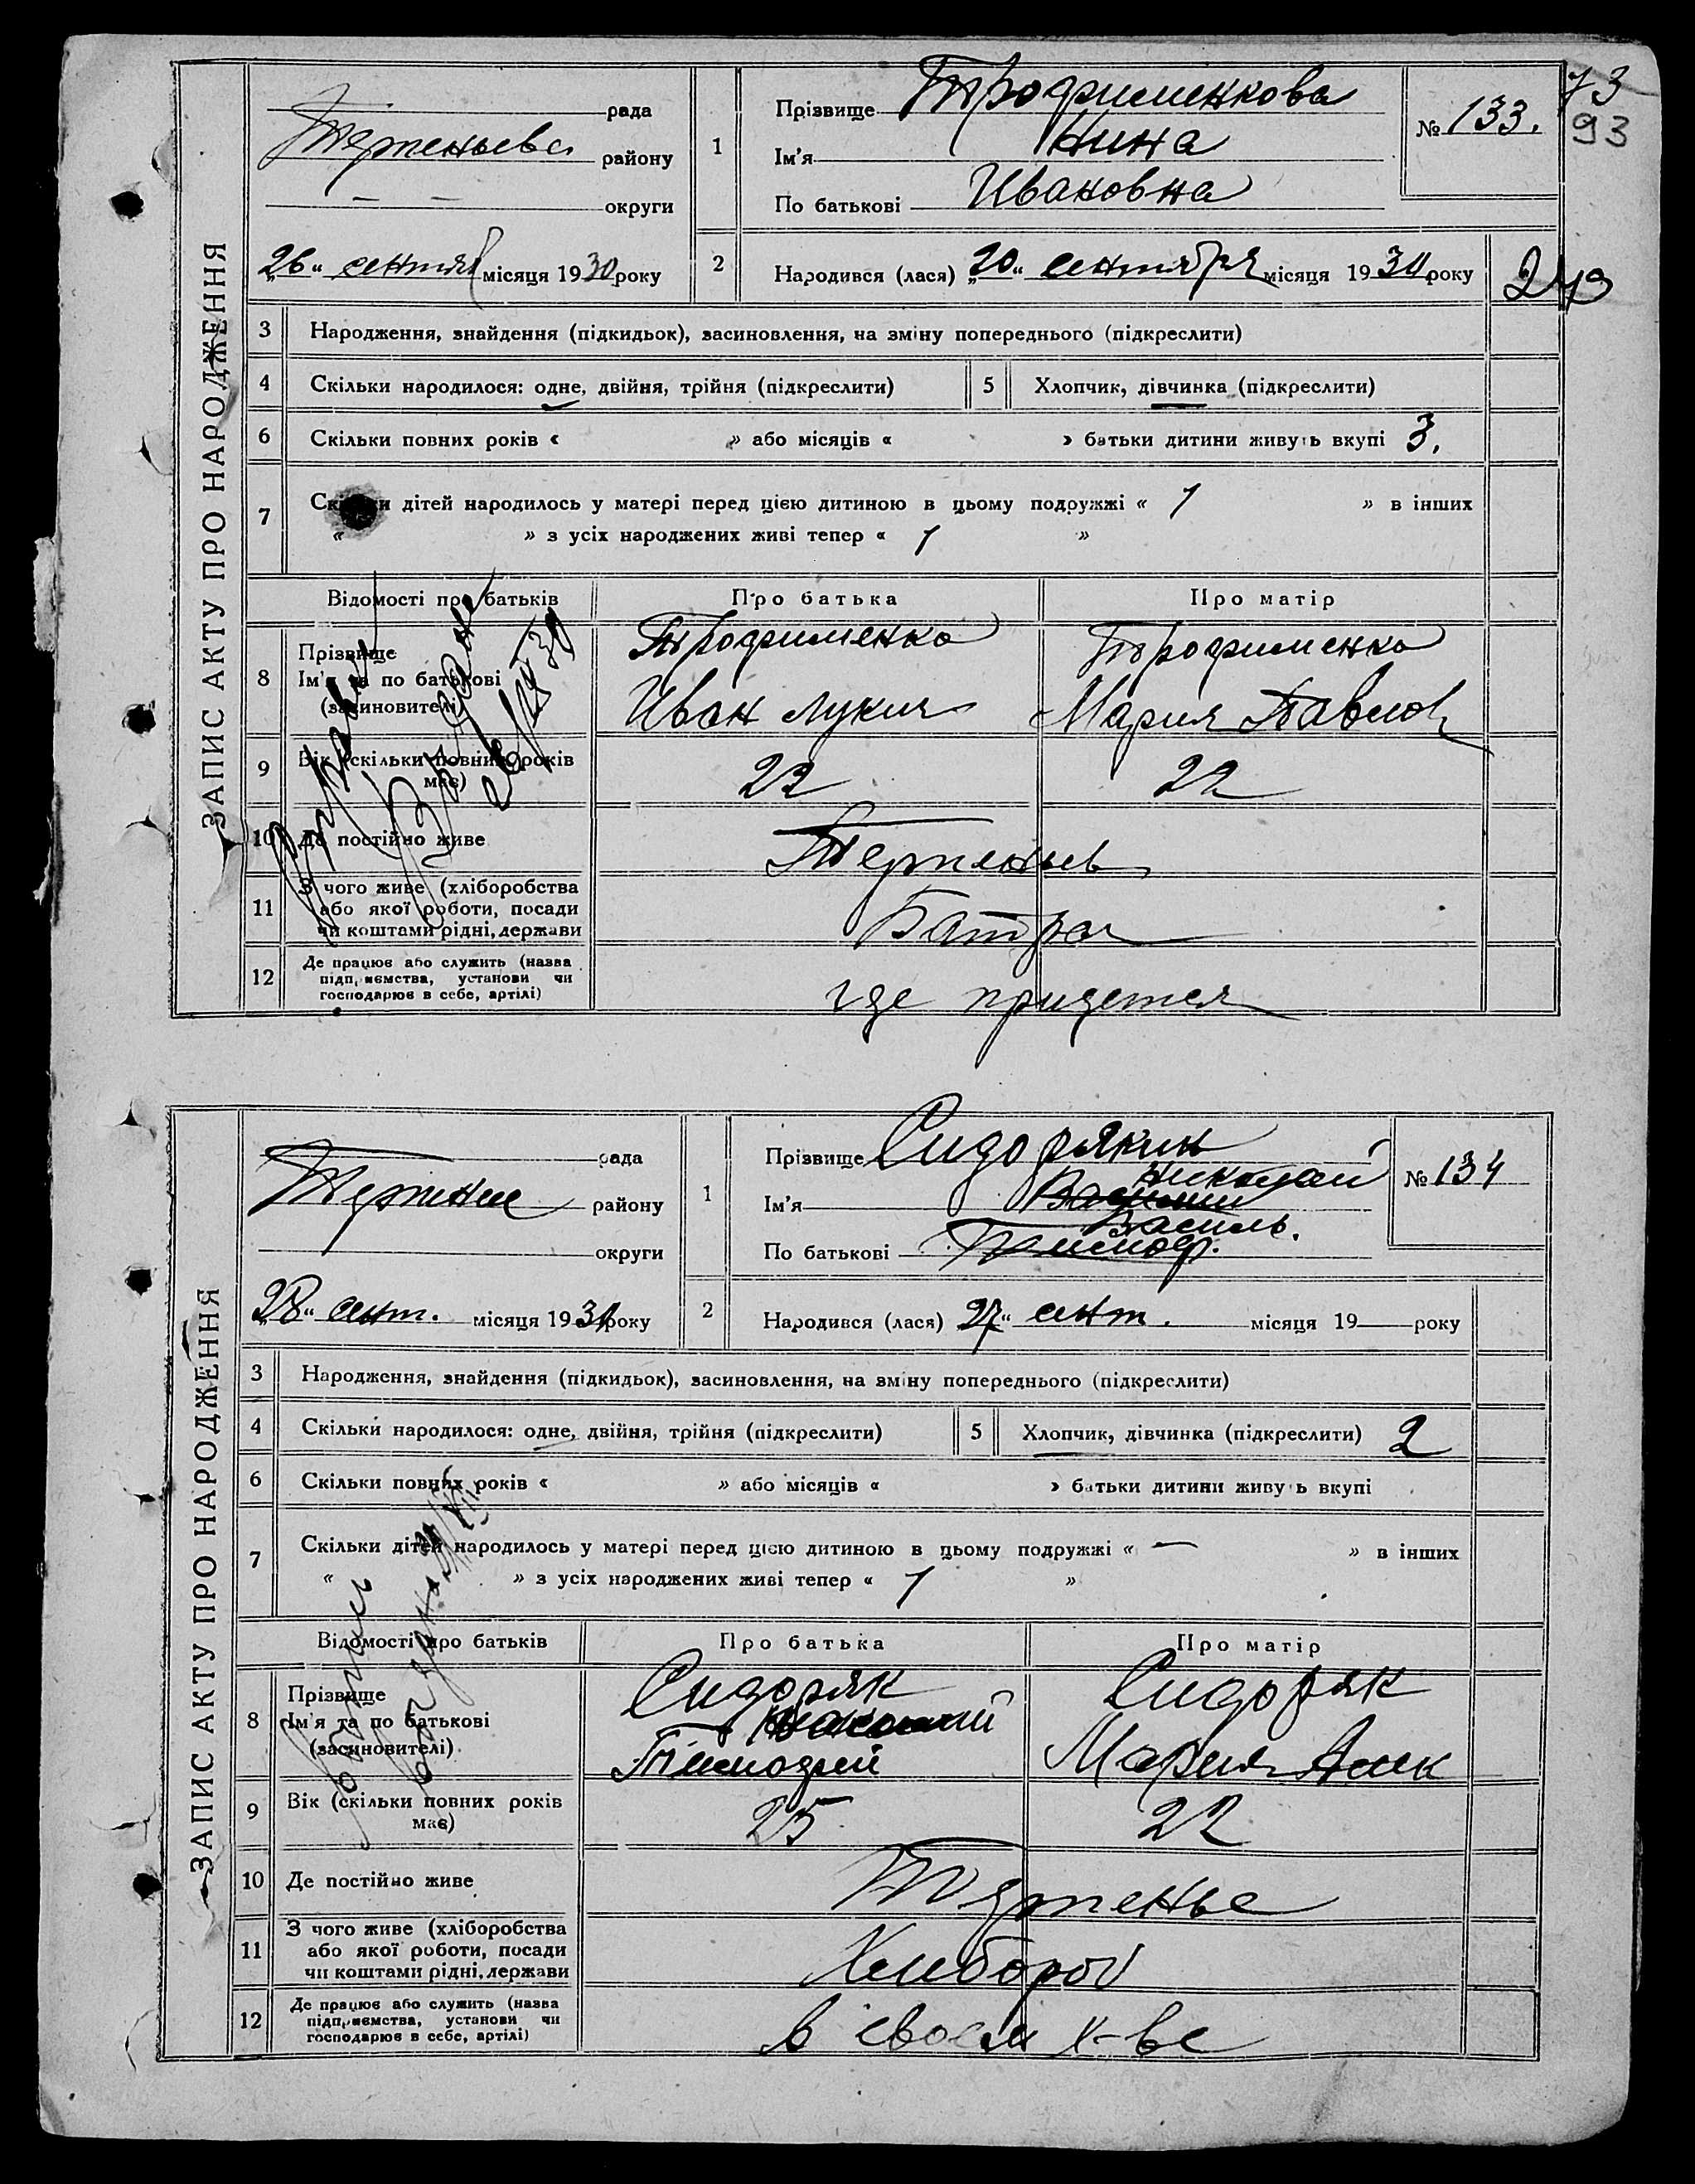 73
93
ЗАПИС АКТУ ПРО НАРОДЖЕННЯ
рада
района району
округи
„26“ сентяб місяця 1930 року
1
Прізвище Трофименкова
Ім'я Нина
По батькові Ивановна
№ 133.
2
Народився (лася) „20“ сентября місяця 1930 року
3 Народження, знайдення (підкидьок), засиновлення, на зміну попереднього (підкреслити)
4 Скільки народилося: одне, двійня, трійня (підкреслити)
5 Хлопчик, дівчинка (підкреслити)
6 Скільки повних років « » або місяців « » батьки дитини живуть вкупі 3.
7 Скільки дітей народилось у матері перед цією дитиною в цьому подружжі « 1 » в інших
« » з усіх народжених живі тепер « 1 »
Відомості про батьків Про батька Про матір
8 Прізвище Трофименко Трофименко
Ім'я та по батькові Иван Лукич Мария Павлов
(засиновителі)
9 Вік (скільки повних років має) 22 22
10 Де постійно живе Терпенье
11 З чого живе (хліборобства або якої роботи, посади чи коштами рідні, держави Батрак
12 Де працює або служить (назва підприємства, установи чи господарює в себе, артілі) где придется
ЗАПИС АКТУ ПРО НАРОДЖЕННЯ
рада
Терпение району
округи
„28“ сент. місяця 1930 року
1
Прізвище Сидорякин
Николай
Ім'я Василий
Василь.
По батькові Тимоф.
№ 134
2
Народився (лася) „27“ сент. місяця 19 року
3 Народження, знайдення (підкидьок), засиновлення, на зміну попереднього (підкреслити)
4 Скільки народилося: одне, двійня, трійня (підкреслити)
5 Хлопчик, дівчинка (підкреслити) 2
6 Скільки повних років « » або місяців « » батьки дитини живуть вкупі
7 Скільки дітей народилось у матері перед цією дитиною в цьому подружжі « — » в інших
« » з усіх народжених живі тепер « 1 »
Відомості про батьків Про батька Про матір
8 Прізвище Сидоряк Сидоряк
Ім'я та по батькові
(засиновителі) Тимофей Мария
9 Вік (скільки повних років має) 25 22
10 Де постійно живе Терпенье
11 З чого живе (хліборобства або якої роботи, посади чи коштами рідні, держави Хлибороб
12 Де працює або служить (назва підприємства, установи чи господарює в себе, артілі) в своем х-ве